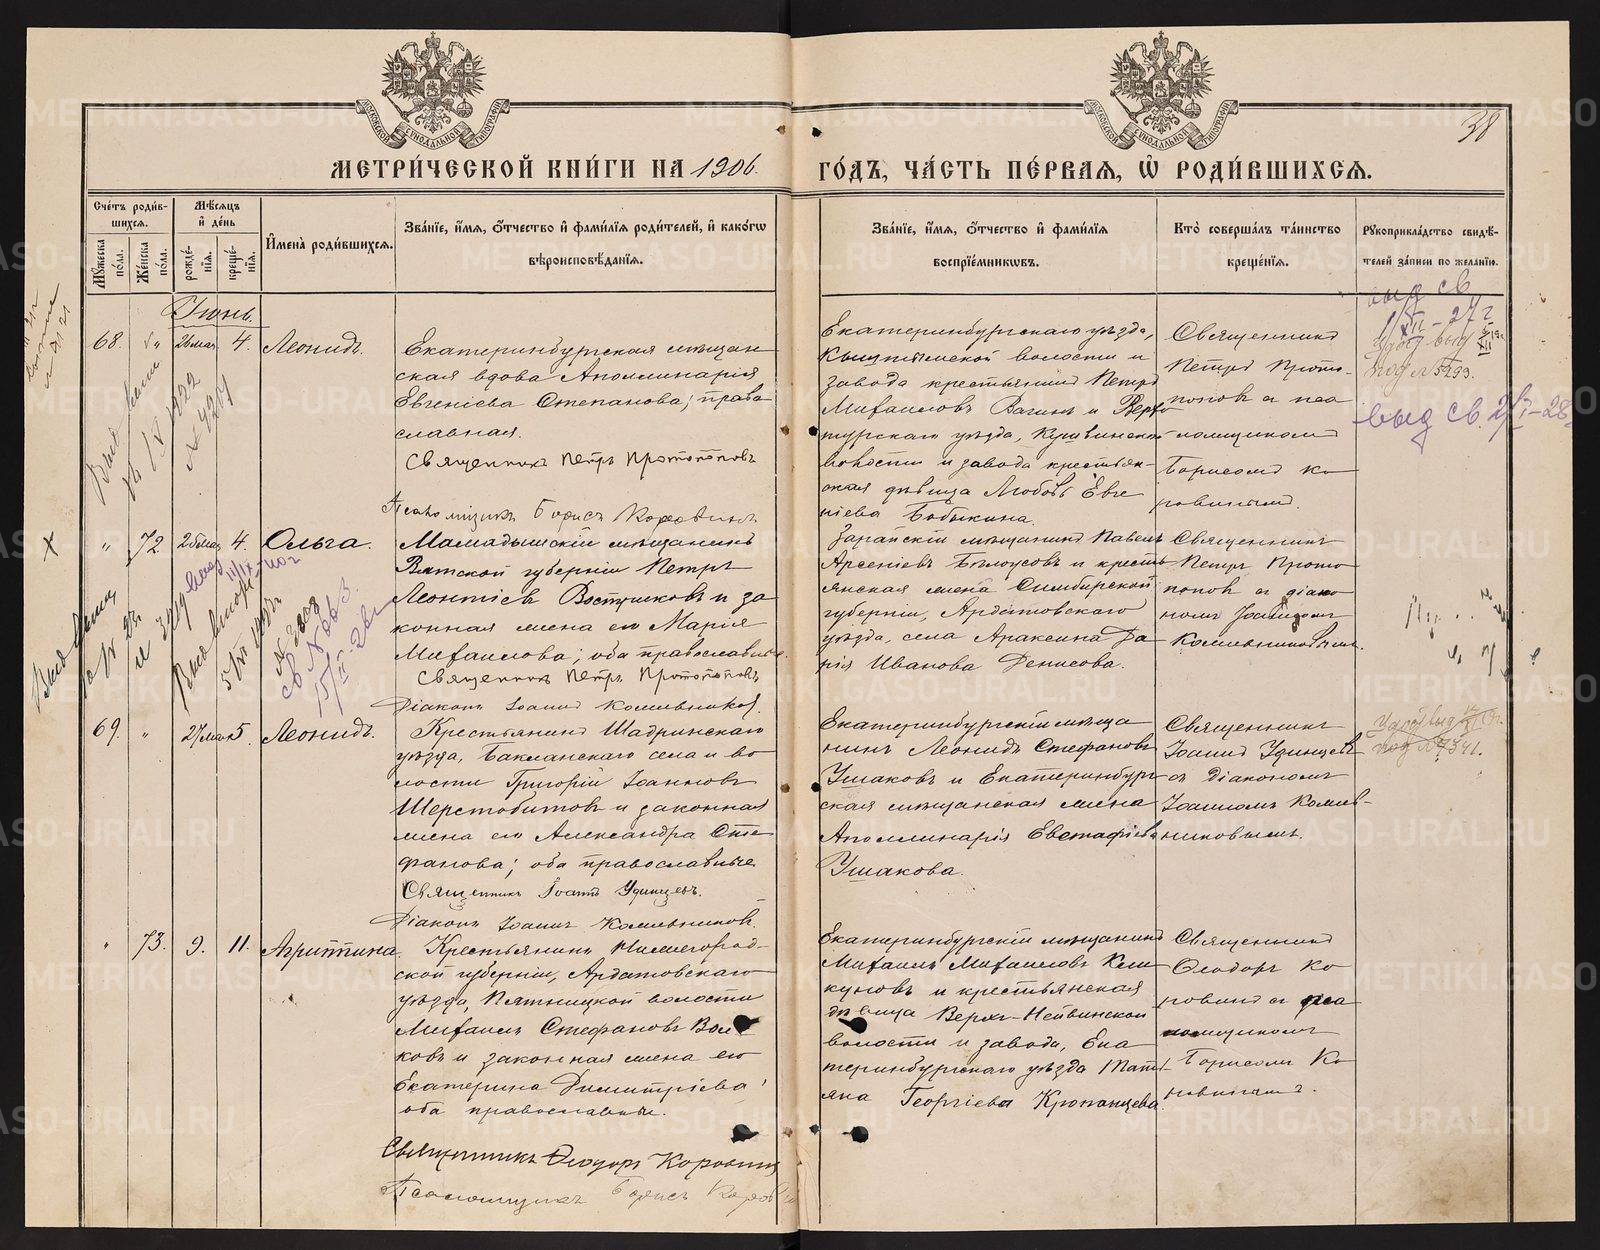 МЕТРИ́ЧЕСКОЙ КНИ́ГИ НА 1906.
ГО́ДЪ, ЧА́СТЬ ПЕ́РВАѦ, Ѡ҆ РОДИ́ВШИХСѦ.
38
Сче́тъ роди́в-
шихсѧ.
Мꙋ́жеска по́ла.
Же́нска по́ла.
Мѣ́сѧцъ
и҆ де́нь
рожде́-
нїѧ.
креще́-
нїѧ.
И҆мена̀ роди́вшихсѧ.
Зва́нїе, и҆́мѧ, ѻ҆́тчество и҆ фами́лїѧ роди́телей, и҆ како́гѡ
вѣроисповѣ́данїѧ.
Зва́нїе, и҆́мѧ, ѻ҆́тчество и҆ фами́лїѧ
воспрїе́мникѡвъ.
Кто̀ соверша́лъ та́инство
креще́нїѧ.
Рꙋкоприкла́дство свидѣ́-
телей за́писи по жела́нїю.
Іюнь.
68. " 26 мая 4. Леонидъ.
Екатеринбургская мѣщан
ская вдова Аполлинарія
Евгеніева Степанова; право
славная.
Священникъ Петръ Протопоповъ
Псаломщикъ Борисъ Коровинъ
Екатеринбургскаго уѣзда,
Кыштымской волости и
завода крестьянинъ Петръ
Михаиловъ Вагинъ и Верхо
турскаго уѣзда, Кушвинской
волости и завода крестьян-
ская дѣвица Любовь Евге
ніева Бабыкина.
Священникъ
Петръ Прото-
поповъ съ пса
ломщикомъ
Борисомъ Ко
ровинымъ.
выд св
под № 5293.
выд св. 2/I-28
" 72 25 мая 4. Ольга.
Мамадышскій мѣщанинъ
Вятской губерніи Петръ
Леонтіевъ Вострыковъ и за
конная жена его Марія
Михаилова; оба православные.
Священникъ Петръ Протопоповъ
Діаконъ Іоаннъ Комельниковъ.
Зарайскій мѣщанинъ Павелъ
Арсеніевъ Бѣлоусовъ и кресть
янская жена Симбирской
губерніи, Ардатовскаго
уѣзда, села Араксина Да
рія Иванова Денисова.
Священникъ
Петръ Прото
поповъ съ діако
номъ Іоанномъ
Комельниковымъ.
69. " 27 мая 5. Леонидъ.
Крестьянинъ Шадринскаго
уѣзда, Бакланскаго села и во
лости Григорій Іоанновъ
Шерстобитовъ и законная
жена его Александра Сте
фанова; оба православные
Священникъ Іоаннъ Удинцевъ.
Діаконъ Іоаннъ Комельниковъ.
Екатеринбургскій мѣща
нинъ Леонидъ Стефановъ
Ушаковъ и Екатеринбург
ская мѣщанская жена
Аполлинарія Евстафіева
Ушакова.
Священникъ
Іоаннъ Удинцевъ
съ Діакономъ
Іоанномъ Комель-
никовымъ.
под № 7341.
" 73. 9. 11. Агриппина.
Крестьянинъ Нижегород-
ской губерніи, Ардатовскаго
уѣзда, Пятницкой волости
Михаилъ Стефановъ Вол
ковъ и законная жена его
Екатерина Димитріева;
оба православные.
Священникъ Ѳеодоръ Коровинъ
Псаломщикъ Борисъ Коровинъ
Екатеринбургскій мѣщанинъ
Михаилъ Михаиловъ Кли
куновъ и крестьянская
дѣвица Верхъ-Нейвинской
волости и завода, Ека
теринбургскаго уѣзда Тать
яна Георгіева Кропанцева.
Священникъ
Ѳеодоръ Ко
ровинъ съ пса
ломщикомъ
Борисомъ Ко
ровинымъ.
METRIKI.GASO-URAL.RU